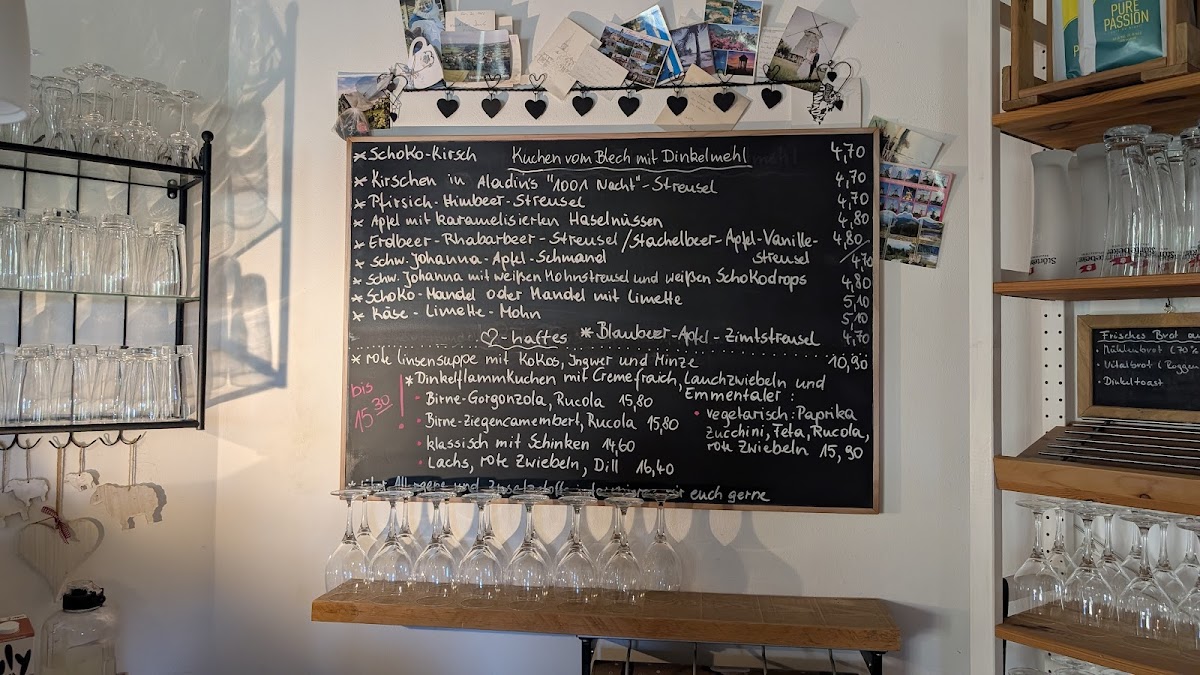 PURE
PASSION
* Schoko-Kirsch Kuchen vom Blech mit Dinkelmehl 4,70
* Kirschen in Aladin's "1001 Nacht"-Streusel 4,70
* Pfirsich-Himbeer-Streusel 4,70
* Apfel mit karamelisierten Haselnüssen 4,80
* Erdbeer-Rhabarber-Streusel/Stachelbeer-Apfel-Vanille- 4,80/
* schw. Johanna-Apfel-Schmand streusel 4,70
* schw. Johanna mit weißen Mohnstreusel und weißen Schokodrops 4,80
* Schoko-Mandel oder Mandel mit Limette 5,10
* Käse-Limette-Mohn 5,10
♡-haftes * Blaubeer-Apfel-Zimtstreusel 4,70
* rote Linsensuppe mit Kokos, Ingwer und Minze 10,90
bis
15³⁰ !
* Dinkelflammkuchen mit Cremefraich, Lauchzwiebeln und
Emmentaler:
• Birne-Gorgonzola, Rucola 15,80
• Birne-Ziegencamembert, Rucola 15,80
• klassisch mit Schinken 14,60
• Lachs, rote Zwiebeln, Dill 16,40
• vegetarisch: Paprika
Zucchini, Feta, Rucola,
rote Zwiebeln 15,90
und euch gerne
Frisches Brot
• Mühlenbrot (70%
• Vitalbrot (Roggen
• Dinkeltoast